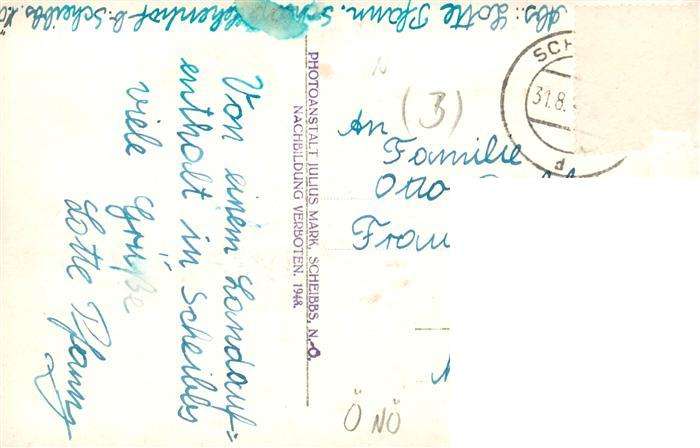 Abs.: Lotte Pfann.
b. Scheibbs.
Von einem Landauf=
enthalt in Scheibbs
viele Grüße
Lotte Pfann
PHOTOANSTALT JULIUS MARK, SCHEIBBS, N.-Ö.
NACHBILDUNG VERBOTEN. 1948.
(3)
SCH
31.8.
An
Familie
Otto
Frau
Ö NÖ